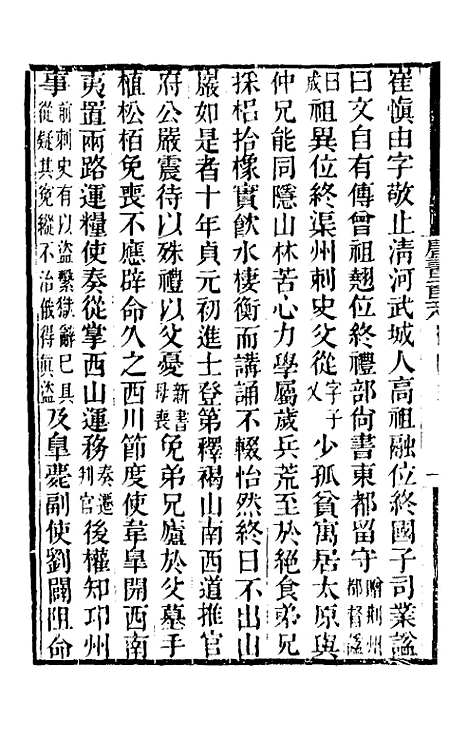 崔愼由字敬止淸河武城人高祖融位終國子司業謚
曰文自有傳曾祖翹位終禮部尙書東都留守贈荆州都督謚
曰成祖異位終渠州刺史父從字子乂少孤貧寓居太原與
仲兄能同隱山林苦心力學屬歲兵荒至於絕食弟兄
採梠拾橡實飲水棲衡而講誦不輟怡然終日不出山
巖如是者十年貞元初進士登第釋褐山南西道推官
府公嚴震待以殊禮以父憂新書母喪免弟兄廬於父墓手
植松栢免喪不應辟命久之西川節度使韋皐開西南
夷置兩路運糧使奏從掌西山運務奏遷判官後權知邛州
事前刺史有以盜繫獄辭已具從疑其冤縱不治俄得眞盜及皐薨副使劉闢阻命